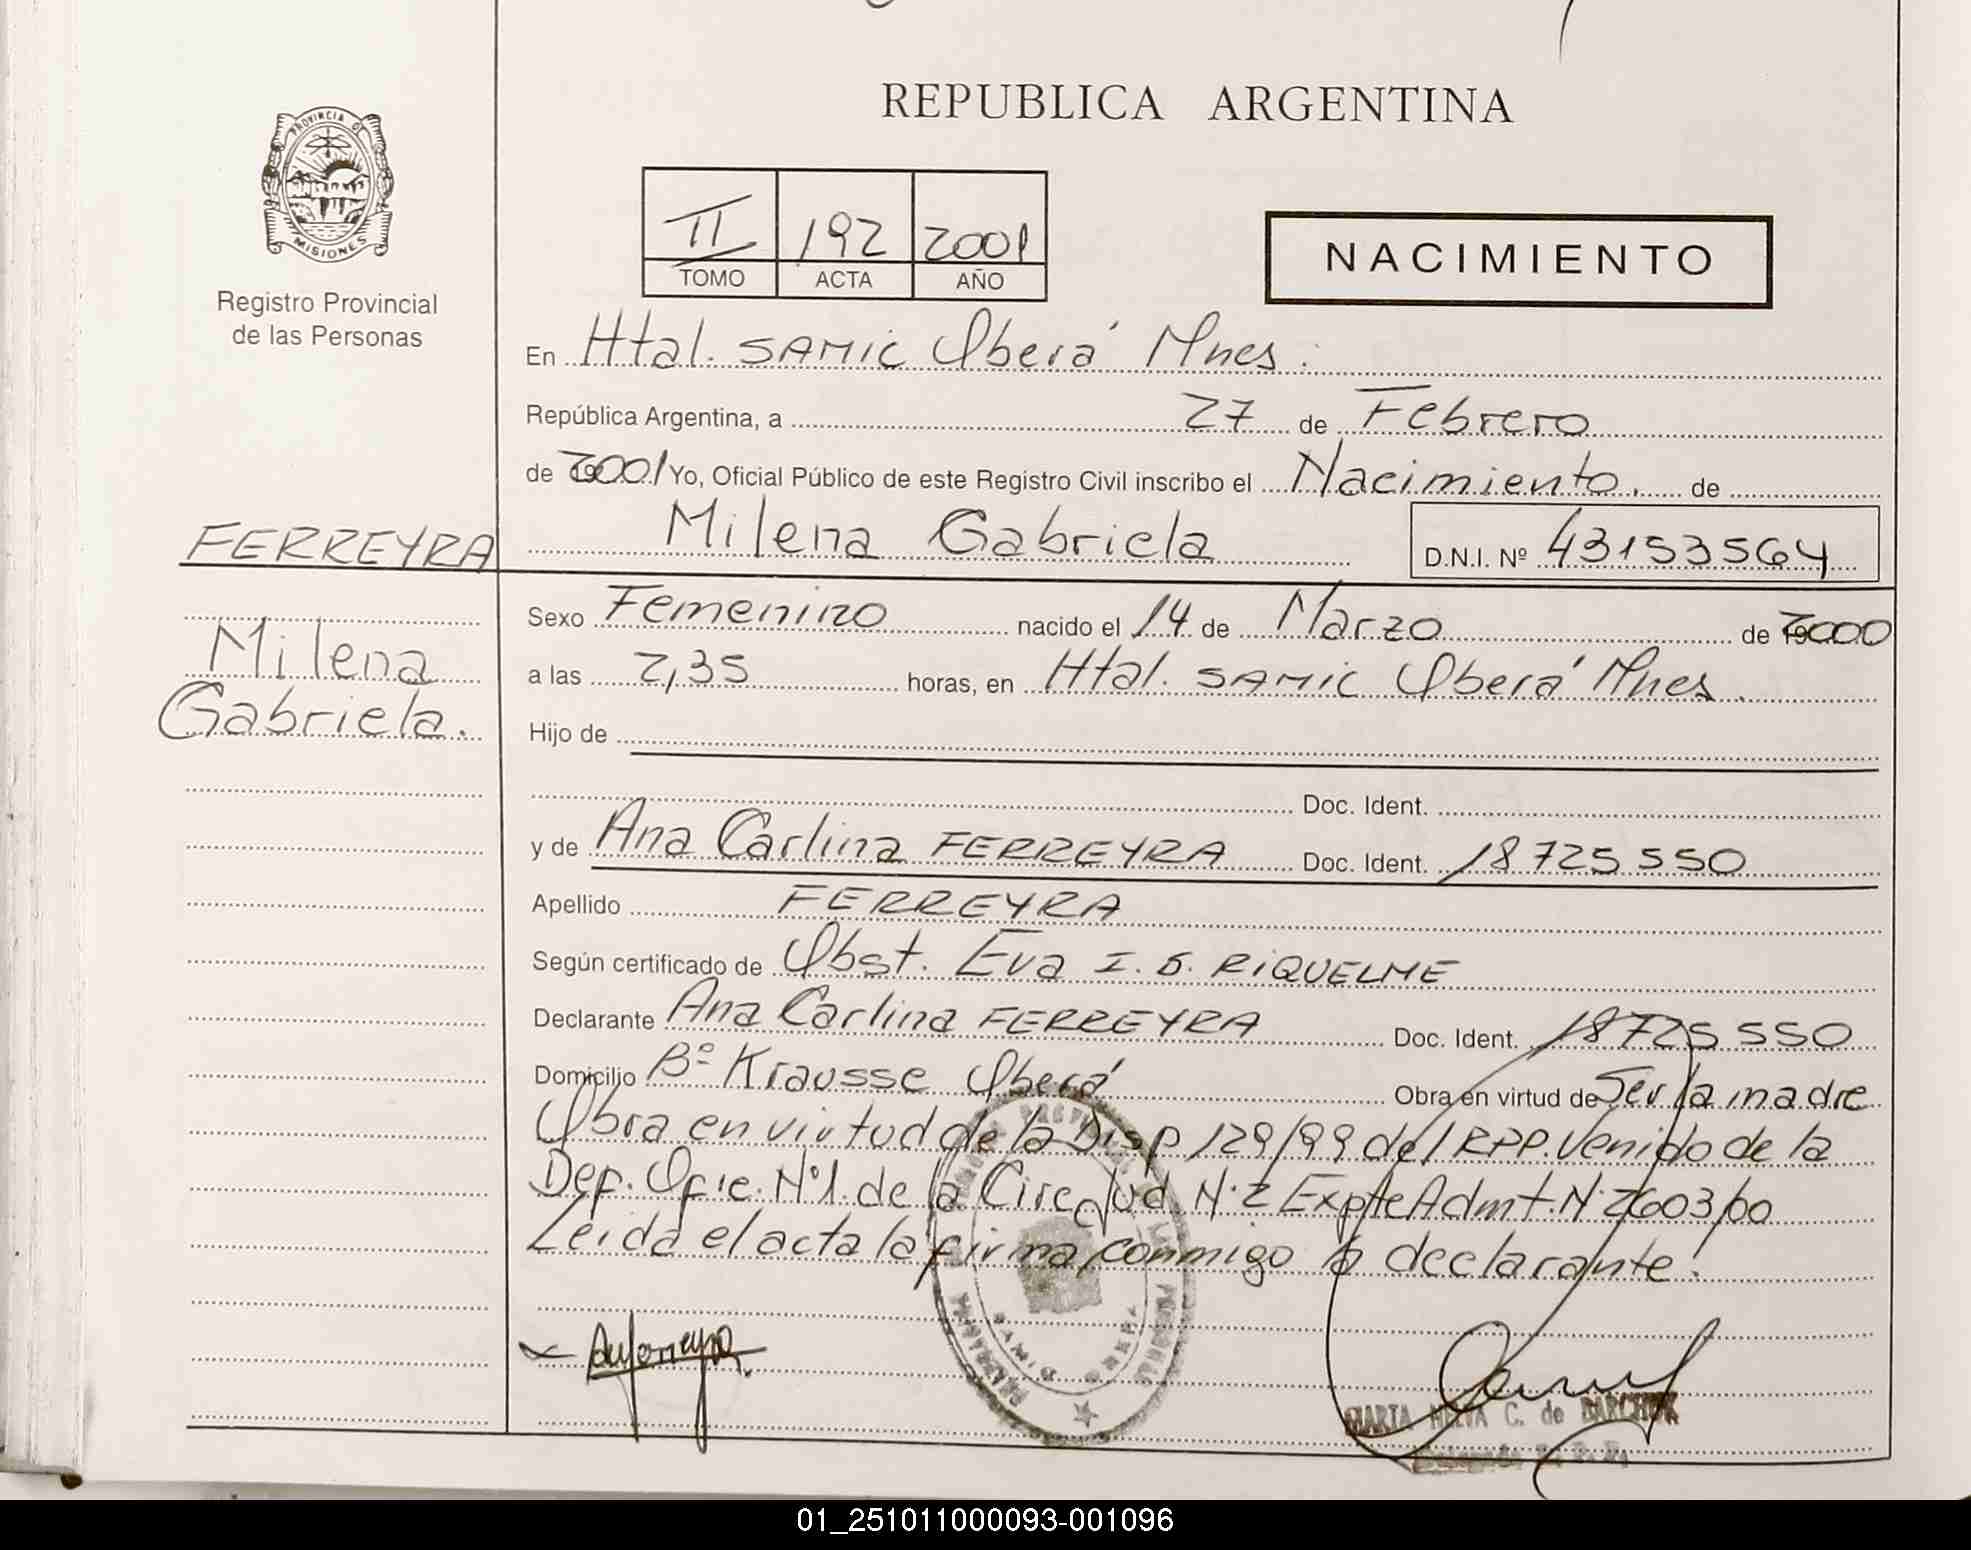 REPUBLICA ARGENTINA
PROVINCIA D
MISIONES
Registro Provincial
de las Personas
II 192 2001
TOMO ACTA AÑO
NACIMIENTO
En Htal. SAMIC Oberá Mnes.
República Argentina, a 27 de Febrero
de 2001 Yo, Oficial Público de este Registro Civil inscribo el Nacimiento. de
FERREYRA Milena Gabriela D.N.I. Nº 43153564
Sexo Femenino nacido el 14 de Marzo de 2000
Milena
Gabriela.
a las 2,35 horas, en Htal. SAMIC Oberá Mnes.
Hijo de
Doc. Ident.
y de Ana Carlina FERREYRA Doc. Ident. 18725550
Apellido FERREYRA
Según certificado de Obst. Eva I. G. RIQUELME
Declarante Ana Carlina FERREYRA Doc. Ident. 18725550
Domicilio Bº Krausse Oberá Obra en virtud de Ser la madre
Obra en virtud de la Disp 129/99 del RPP. Venido de la
Def. Ofic. Nº1. de la Circ Jud N.2 Expte Admt. N.2603/00
Leida el acta la firma conmigo la declarante.
MARTA C. de BARCHUK
01_251011000093-001096